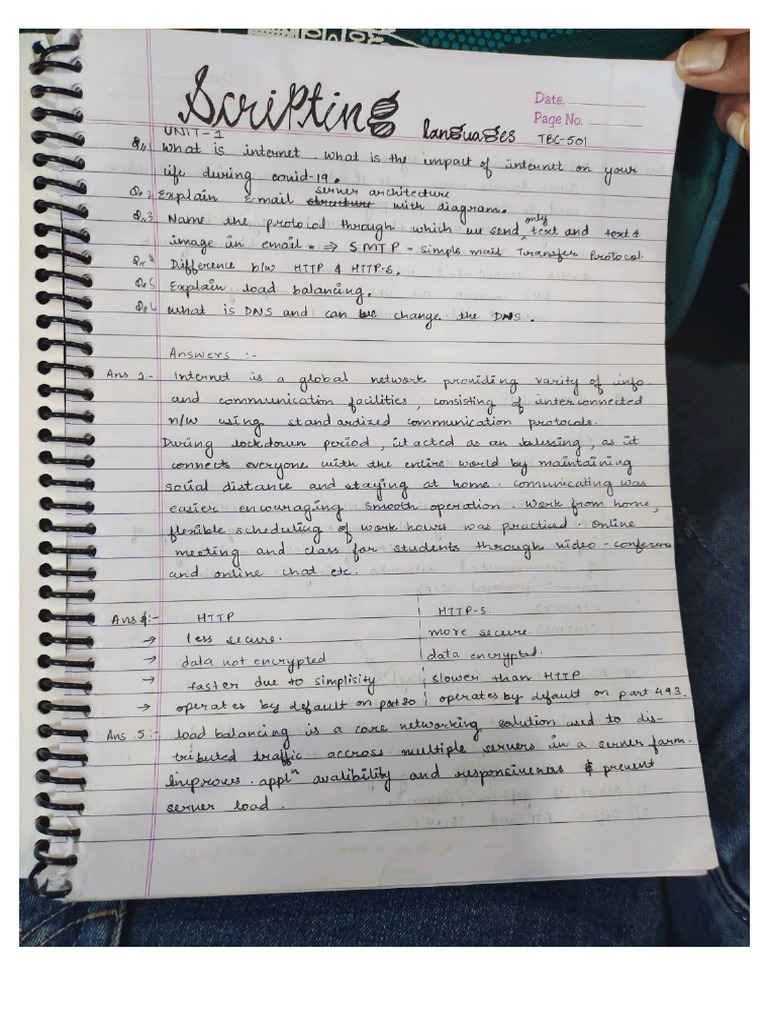 Scripting languages
Date.
Page No.
TBC-501
UNIT-1
Qn1 What is internet. What is the impact of internet on your
life during covid-19.
Qn 2 Explain E-mail structure server architecture with diagram.
Qn3 Name the protocol through which we send only text and text &
image in email. ⇒ SMTP - Simple Mail Transfer Protocol.
Qn 4 Difference b/w HTTP & HTTP-S.
Qn 5 Explain load balancing.
Qn 6 What is DNS and can we change the DNS.
Answers :-
Ans 1:- Internet is a global network providing varity of info.
and communication facilities, consisting of interconnected
n/w using standardized communication protocols.
During lockdown period, it acted as an blessing, as it
connects everyone with the entire world by maintaining
social distance and staying at home. Comunicating was
easier encouraging smooth operation. Work from home,
flexible scheduling of work hours was practised. Online
meeting and class for students through video-conference
and online chat etc.
Ans 4:- HTTP HTTP-S.
→ less secure. more secure
→ data not encrypted data encrypted.
→ faster due to simplisity slower than HTTP
→ operates by default on port 80 operates by default on part 493.
Ans 5:- load balancing is a core networking solution used to dis-
tributed traffic accross multiple servers in a server farm.
Improves applⁿ avalibility and responsiveness & prevent
server load.